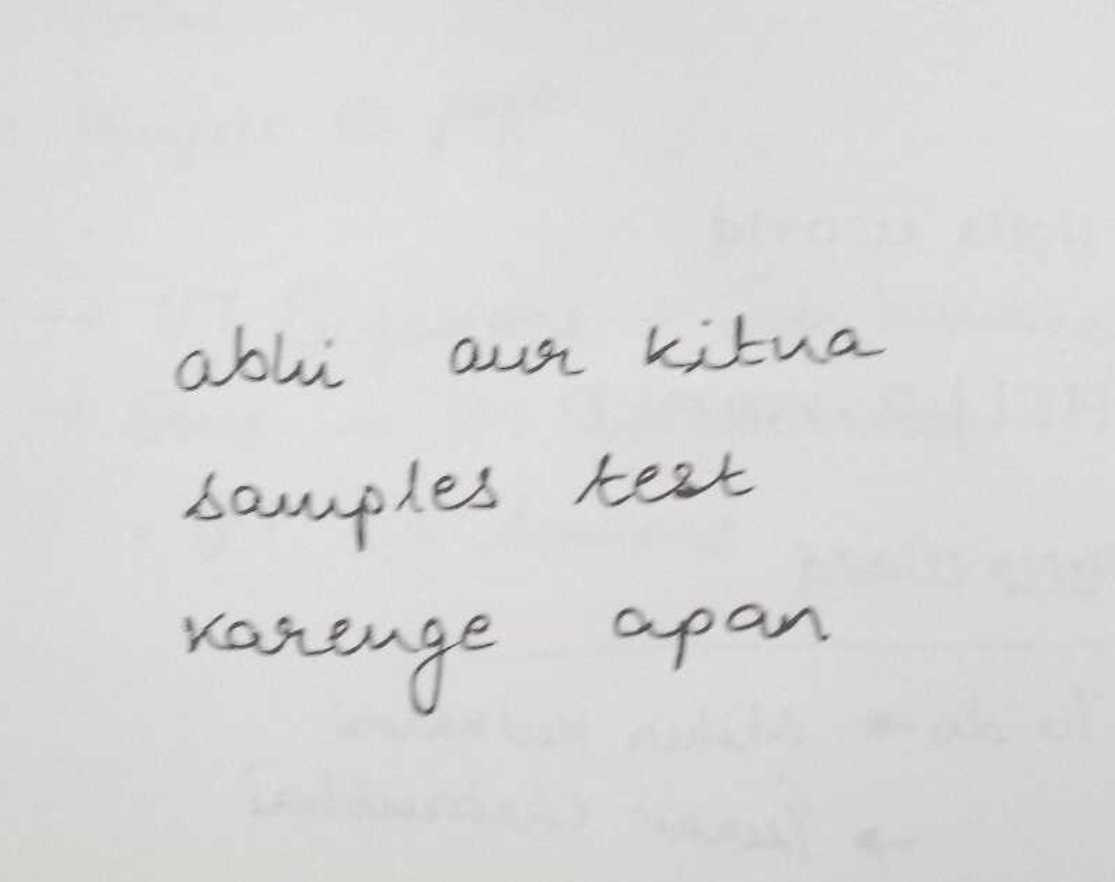 abhi aur kitna
samples test
karenge apan